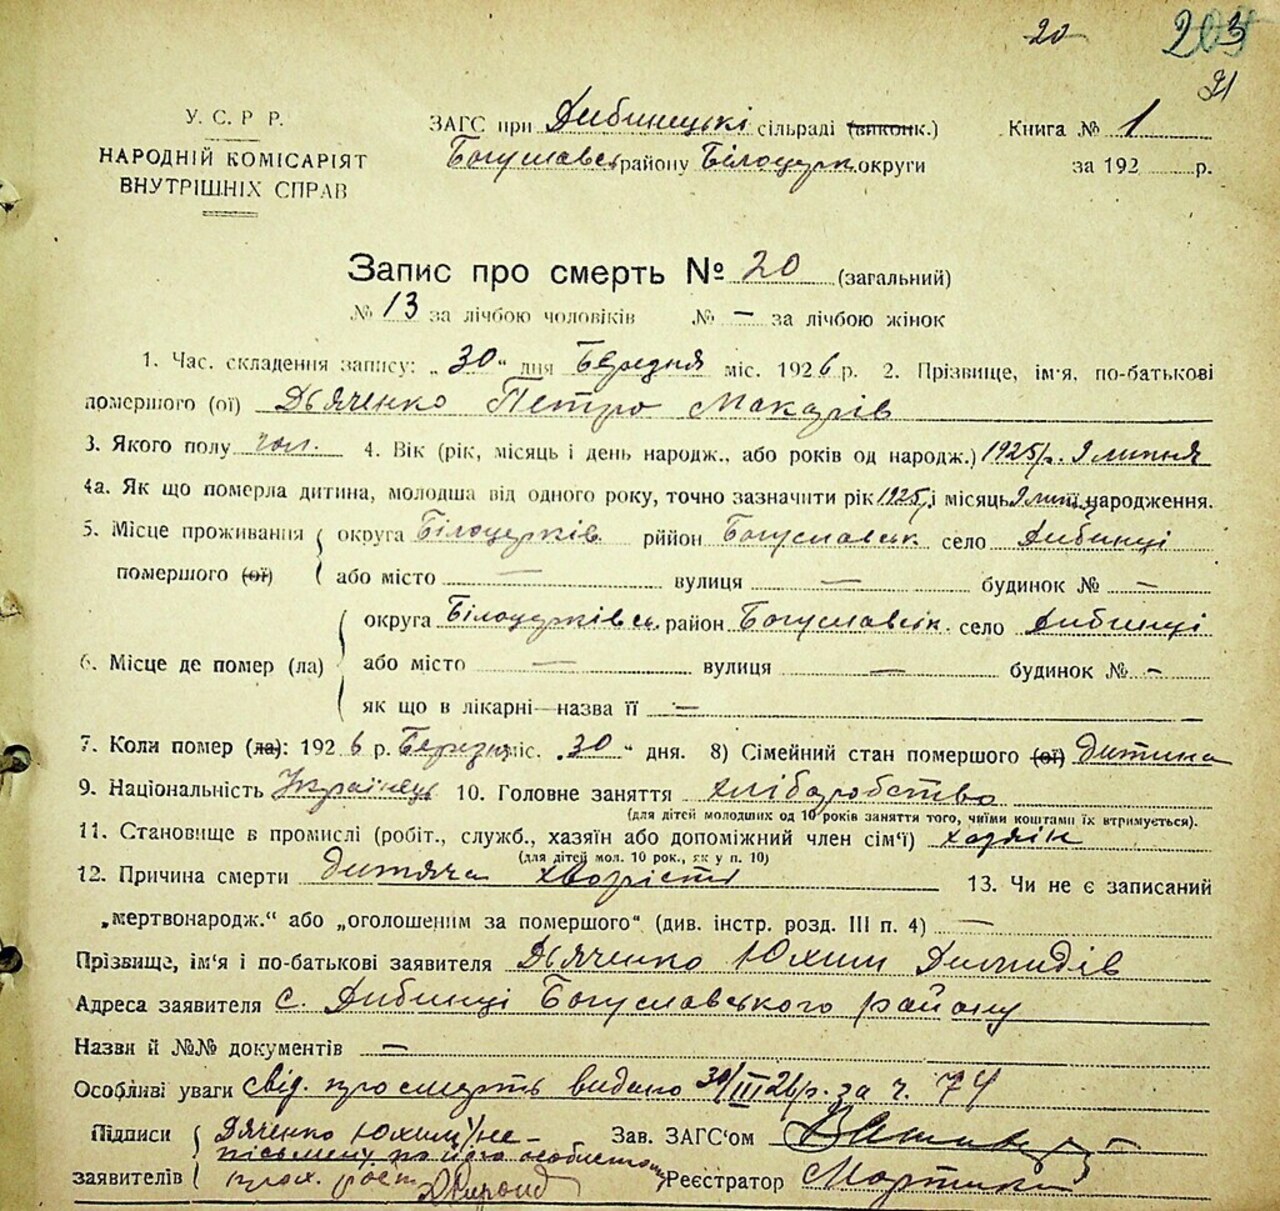 20 203
91
У. С. Р. Р.
НАРОДНІЙ КОМІСАРІЯТ
ВНУТРІШНІХ СПРАВ
ЗАГС при Дибинецькі сільраді (виконк.)
Богуславськ району Білоцерк округи
Книга № 1
за 192 р.
Запис про смерть № 20 (загальний)
№ 13 за лічбою чоловіків № — за лічбою жінок
1. Час. складення запису: „30“ дня Березня міс. 1926 р. 2. Прізвище, ім'я, по-батькові
помершого (ої) Дьяченко Петро Макарів
3. Якого полу чол. 4. Вік (рік, місяць і день народж., або років од народж.) 1925 р. 9 липня
4а. Як що померла дитина, молодша від одного року, точно зазначити рік 1925 і місяць 9 липня народження.
5. Місце проживання помершого (ої) округа Білоцерків. рййон Богуславськ село Дибинці
або місто — вулиця — будинок № —
6. Місце де помер (ла) округа Білоцерківськ. район Богуславськ. село Дибинці
або місто — вулиця — будинок № —
як що в лікарні—назва її —
7. Коли помер (ла): 1926 р. Березня міс. „30“ дня. 8) Сімейний стан помершого (ої) дитина
9. Національність Українець 10. Головне заняття хліборобство
(для дітей молодших од 10 років заняття того, чиїми коштами їх втримується).
11. Становище в промислі (робіт., служб., хазяїн або допоміжний член сім'ї) хазяїн
(для дітей мол. 10 рок., як у п. 10)
12. Причина смерти дитяча хворість 13. Чи не є записаний
„мертвонародж.“ або „оголошеним за помершого“ (див. інстр. розд. III п. 4) —
Прізвище, ім'я і по-батькові заявителя Дьяченко Юхим
Адреса заявителя с. Дибинці Богуславського району
Назви й №№ документів —
Особліві уваги Свід. про смерть видано 30/III 26 р. за ч. 74
Підписи заявителів Дяченко Юхим не-
письмен. по його особистому
прох. рост.
Зав. ЗАГС'ом
Реєстратор